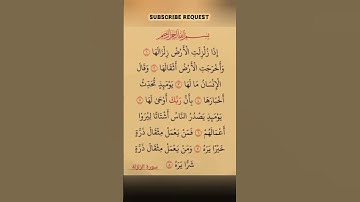 SUBSCRIBE REQUEST
بِسْمِ اللَّهِ الرَّحْمَٰنِ الرَّحِيمِ
إِذَا زُلْزِلَتِ الْأَرْضُ زِلْزَالَهَا ١
وَأَخْرَجَتِ الْأَرْضُ أَثْقَالَهَا ٢ وَقَالَ
الْإِنْسَانُ مَا لَهَا ٣ يَوْمَئِذٍ تُحَدِّثُ
أَخْبَارَهَا ٤ بِأَنَّ رَبَّكَ أَوْحَىٰ لَهَا ٥
يَوْمَئِذٍ يَصْدُرُ النَّاسُ أَشْتَاتًا لِيُرَوْا
أَعْمَالَهُمْ ٦ فَمَنْ يَعْمَلْ مِثْقَالَ ذَرَّةٍ
خَيْرًا يَرَهُ ٧ وَمَنْ يَعْمَلْ مِثْقَالَ ذَرَّةٍ
شَرًّا يَرَهُ ٨
سورة الزلزلة